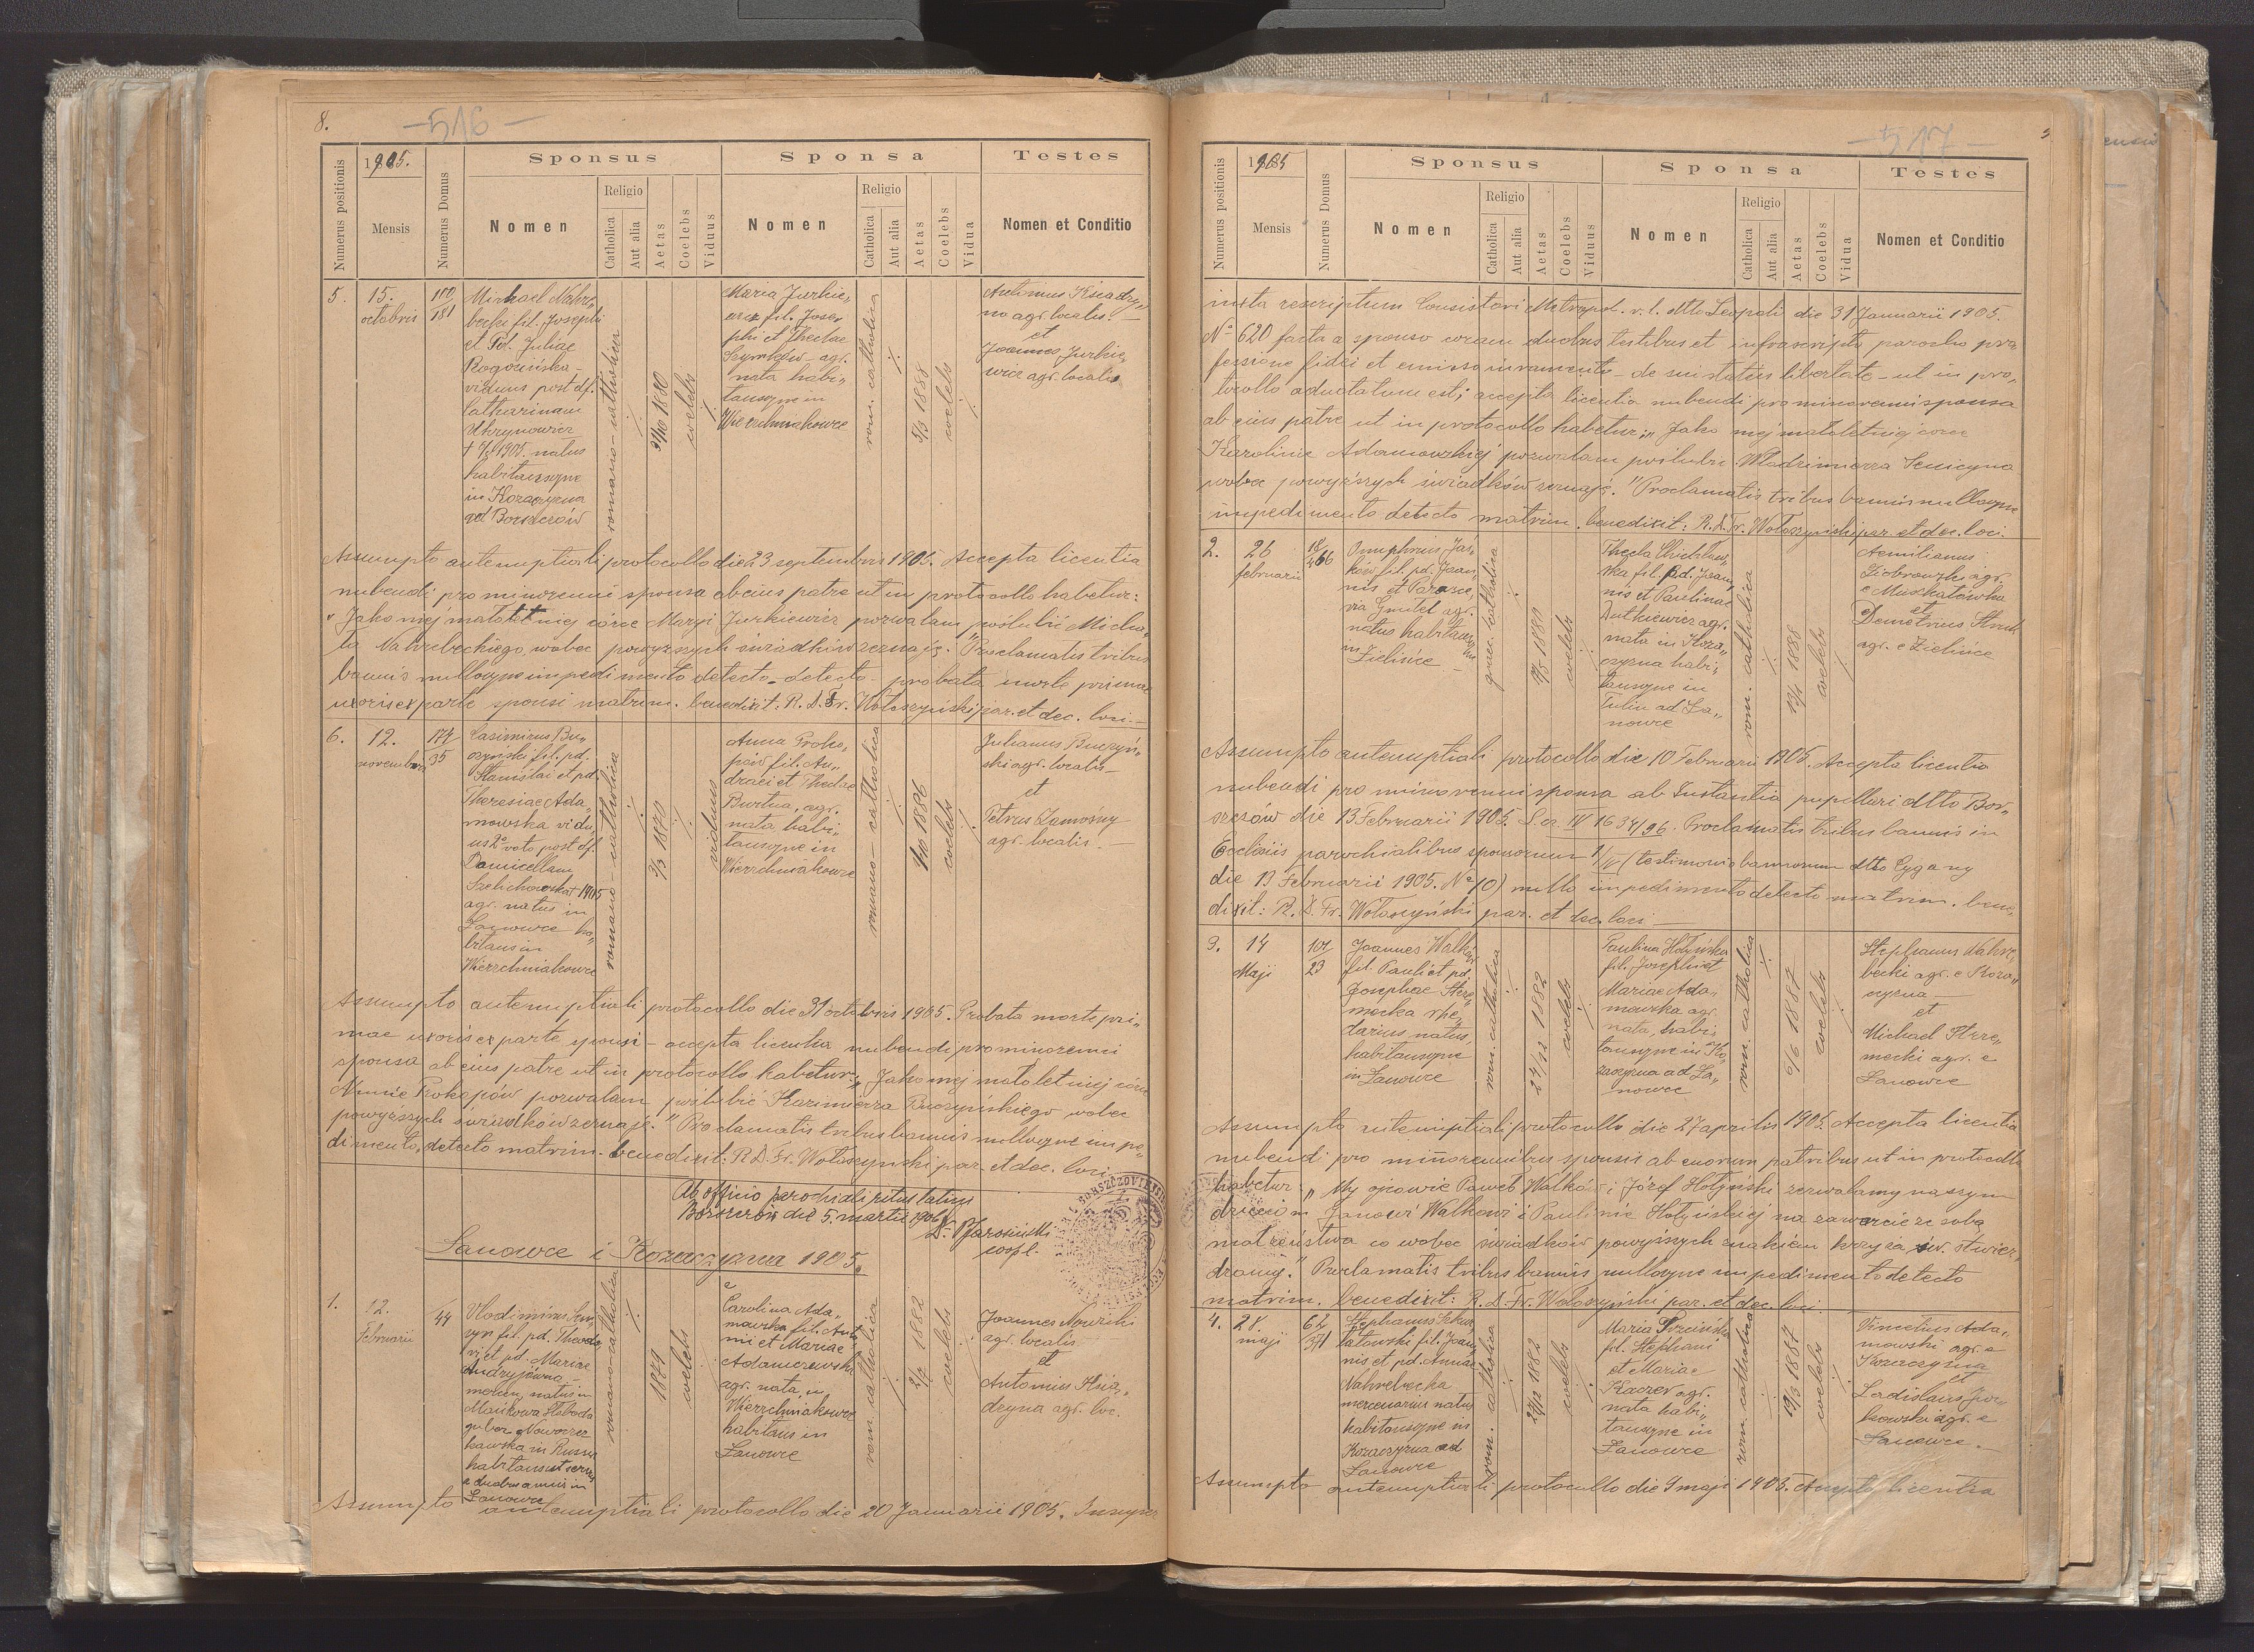 8.
— 516 —
1905.
Sponsus
Sponsa
Testes
Numerus positionis
Mensis
Numerus Domus
Nomen
Religio
Catholica
Aut alia
Aetas
Coelebs
Viduus
Nomen
Religio
Catholica
Aut alia
Aetas
Coelebs
Vidua
Nomen et Conditio
5.
15.
octobris
180
181
Michael Nahrze„
becki fil. Josephi
et Juliae
Rogozińska -
viduus post df.
Catharinam
1905. natus
habitansque
in Kozaczyzna
ad Borszczów
romano-catholica
1880
coelebs
Maria Jurkie„
wicz fil. Jose„
phi et Theclae
Szymków - agr.
nata habi„
tansque in
Wierzchniakowce
rom. catholica
3/3 1888
coelebs
Antonius
agr. localis. —
et
Joannes Jurkie„
wicz agr. localis
Assumpto antenuptiali protocollo die 23 septembris 1905. Accepta licentia
nubendi pro minorenni sponsa ab eius patre ut in protocollo habetur:
„Jako mej małoletniej córce Maryi Jurkiewicz pozwalam poślubić Micha„
ła Nahrzebeckiego wobec powyższych świadków zeznaję." Proclamatis tribus
bannis nulloque impedimento detecto - detecto - probata morte primae
uxoris ex parte sponsi matrim. benedixit: R. D. Fr. Wołoszyński par. et dec. loci. —
6.
12.
novembris
174
35
Casimirus Bu„
czyński fil. pd.
Stanislai et pd.
Theresiae Ada„
mowska vidu„
us 2º voto post df.
Szelichowska † 1905
agr. natus in
Łanowce ha„
bitans in
Wierzchniakowce
romano-catholica
3/3 1870
viduus
Anna Proko„
pów fil. An„
dreae et Theclae
Burtna, agr.
nata, habi„
tansque in
Wierzchniakowce
romano-catholica
1/10 1886
coelebs
Julianus Buczyń„
ski agr. localis —
et
Petrus Zamośny
agr. localis. —
Assumpto antenuptiali protocollo die 31 octobris 1905. Probata morte pri„
mae uxoris ex parte sponsi - accepta licentia nubendi pro minorenni
sponsa ab eius patre ut in protocollo habetur: „Jako mej małoletniej córce
Annie Prokopów pozwalam poślubić Kazimierza Buczyńskiego wobec
powyższych świadków zeznaję." Proclamatis tribus bannis nulloque impe„
dimento, detecto matrim. benedixit: R. D. Fr. Wołoszyński par. et dec. loci.
Ab officio parochiali ritus latini
Borszczów die 5. martii 1906
coop.
Łanowce i Kozaczyzna 1905.
1.
12.
Februarii
44
Vlodimirus Sen„
fil. pd. Theodo„
ri et pd. Mariae
Andryjówna -
natus in
Mańkowa Słoboda
in Russia
habitans
a duobus annis in
Łanowce
romano-catholica
1879
coelebs
Carolina Ada„
mowska fil. Anto„
nii et Mariae
agr. nata in
Wierzchniakowce
habitans in
Łanowce
rom. catholica
1882
coelebs
Joannes Nowicki
agr. localis
et
Antonius
agr. loc.
Assumpto antenuptiali protocollo die 20 Januarii 1905. Insuper
— 517 —
1905
Sponsus
Sponsa
Testes
Numerus positionis
Mensis
Numerus Domus
Nomen
Religio
Catholica
Aut alia
Aetas
Coelebs
Viduus
Nomen
Religio
Catholica
Aut alia
Aetas
Coelebs
Vidua
Nomen et Conditio
iuxta rescriptum Consistorii Metropol. r. l. dtto Leopoli die 31 Januarii 1905.
Nº 620 facta a sponso coram duobus testibus et infrascripto parocho pro„
fessione fidei et emisso iuramento - de sui status libertate - ut in pro„
tocollo adnotatum est; accepta licentia nubendi pro minorenni sponsa
ab eius patre ut in protocollo habetur: „Jako mej małoletniej córce
Karolinie Adamowskiej pozwalam poślubić Włodzimierza
wobec powyższych świadków zeznaję." Proclamatis tribus bannis nulloque
impedimento detecto matrim. benedixit: R. D. Fr. Wołoszyński par. et dec. loci.
2.
26
februarii
18
Omuphrius Jaś„
ków fil. pd. Joan„
nis et Parasce„
via agr.
natus habitansque
in Zielińce
graec. catholica
1880
coelebs
Thecla
fil. pd. Joan„
nis et Paulinae
Dutkiewicz agr.
nata in Koza„
czyzna habi„
tansque in
Tulin ad Ła„
nowce
rom. catholica
1888
coelebs
Aemilianus
Ziobrowski agr.
e Muszkatówka
et
Demetrius
agr. e Zielińce
Assumpto antenuptiali protocollo die 10 Februarii 1905. Accepta licentia
nubendi pro minorenni sponsa ab Instantia pupillari dtto Bor„
szczów die 13 Februarii 1905. L. cz. IV 1634/96. Proclamatis tribus bannis in
Ecclesiis parochialibus sponsorum (testimonio bannorum dtto Cygany
die 19 Februarii 1905. Nº 10) nullo impedimento detecto matrim. bene„
dixit: R. D. Fr. Wołoszyński par. et dec. loci —
3.
14
Maji
107
23
Joannes Walków
fil. Pauli et pd.
Josephae Strze„
mecka
natus,
habitansque
in Łanowce
rom. catholica
24/12 1882
coelebs
Paulina Hołyńska
fil. Josephi et
Mariae Ada„
mowska agr.
nata, habi„
tansque in Ko„
zaczyzna ad Ła„
nowce
rom. catholica
6/6 1887
coelebs
Stephanus Nahrze„
becki agr. e Koza„
czyzna —
et
Michael Strze„
mecki agr. e
Łanowce
Assumpto antenuptiali protocollo die 27 aprilis 1905. Accepta licentia
nubendi pro minorennibus sponsis ab eorum patribus ut in protocollo
habetur: „My ojcowie Paweł Walków i Józef Hołyński zezwalamy naszym
dzieciom Janowi Walkowi i Paulinie Hołyńskiej na zawarcie ze sobą
małżeństwa co wobec świadków powyższych znakiem krzyża św. stwier„
dzamy." Proclamatis tribus bannis nulloque impedimento detecto
matrim. benedixit: R. D. Fr. Wołoszyński par. et dec. loci.
4.
28.
maji
62
371
Stephanus
fil. Joan„
nis et pd. Annae
Nahrebecka
mercenarius natus
habitansque in
Kozaczyzna ad
Łanowce
rom. catholica
1882
coelebs
Maria
fil. Stephani
et Mariae
Kaczor agr.
nata habi„
tansque in
Łanowce
rom. catholica
19/3 1887
coelebs
Vincetius Ada„
mowski agr. e
Kozaczyzna
et
Ladislaus
agr. e
Łanowce. —
Assumpto antenuptiali protocollo die 9 maji 1905. Accepta licentia